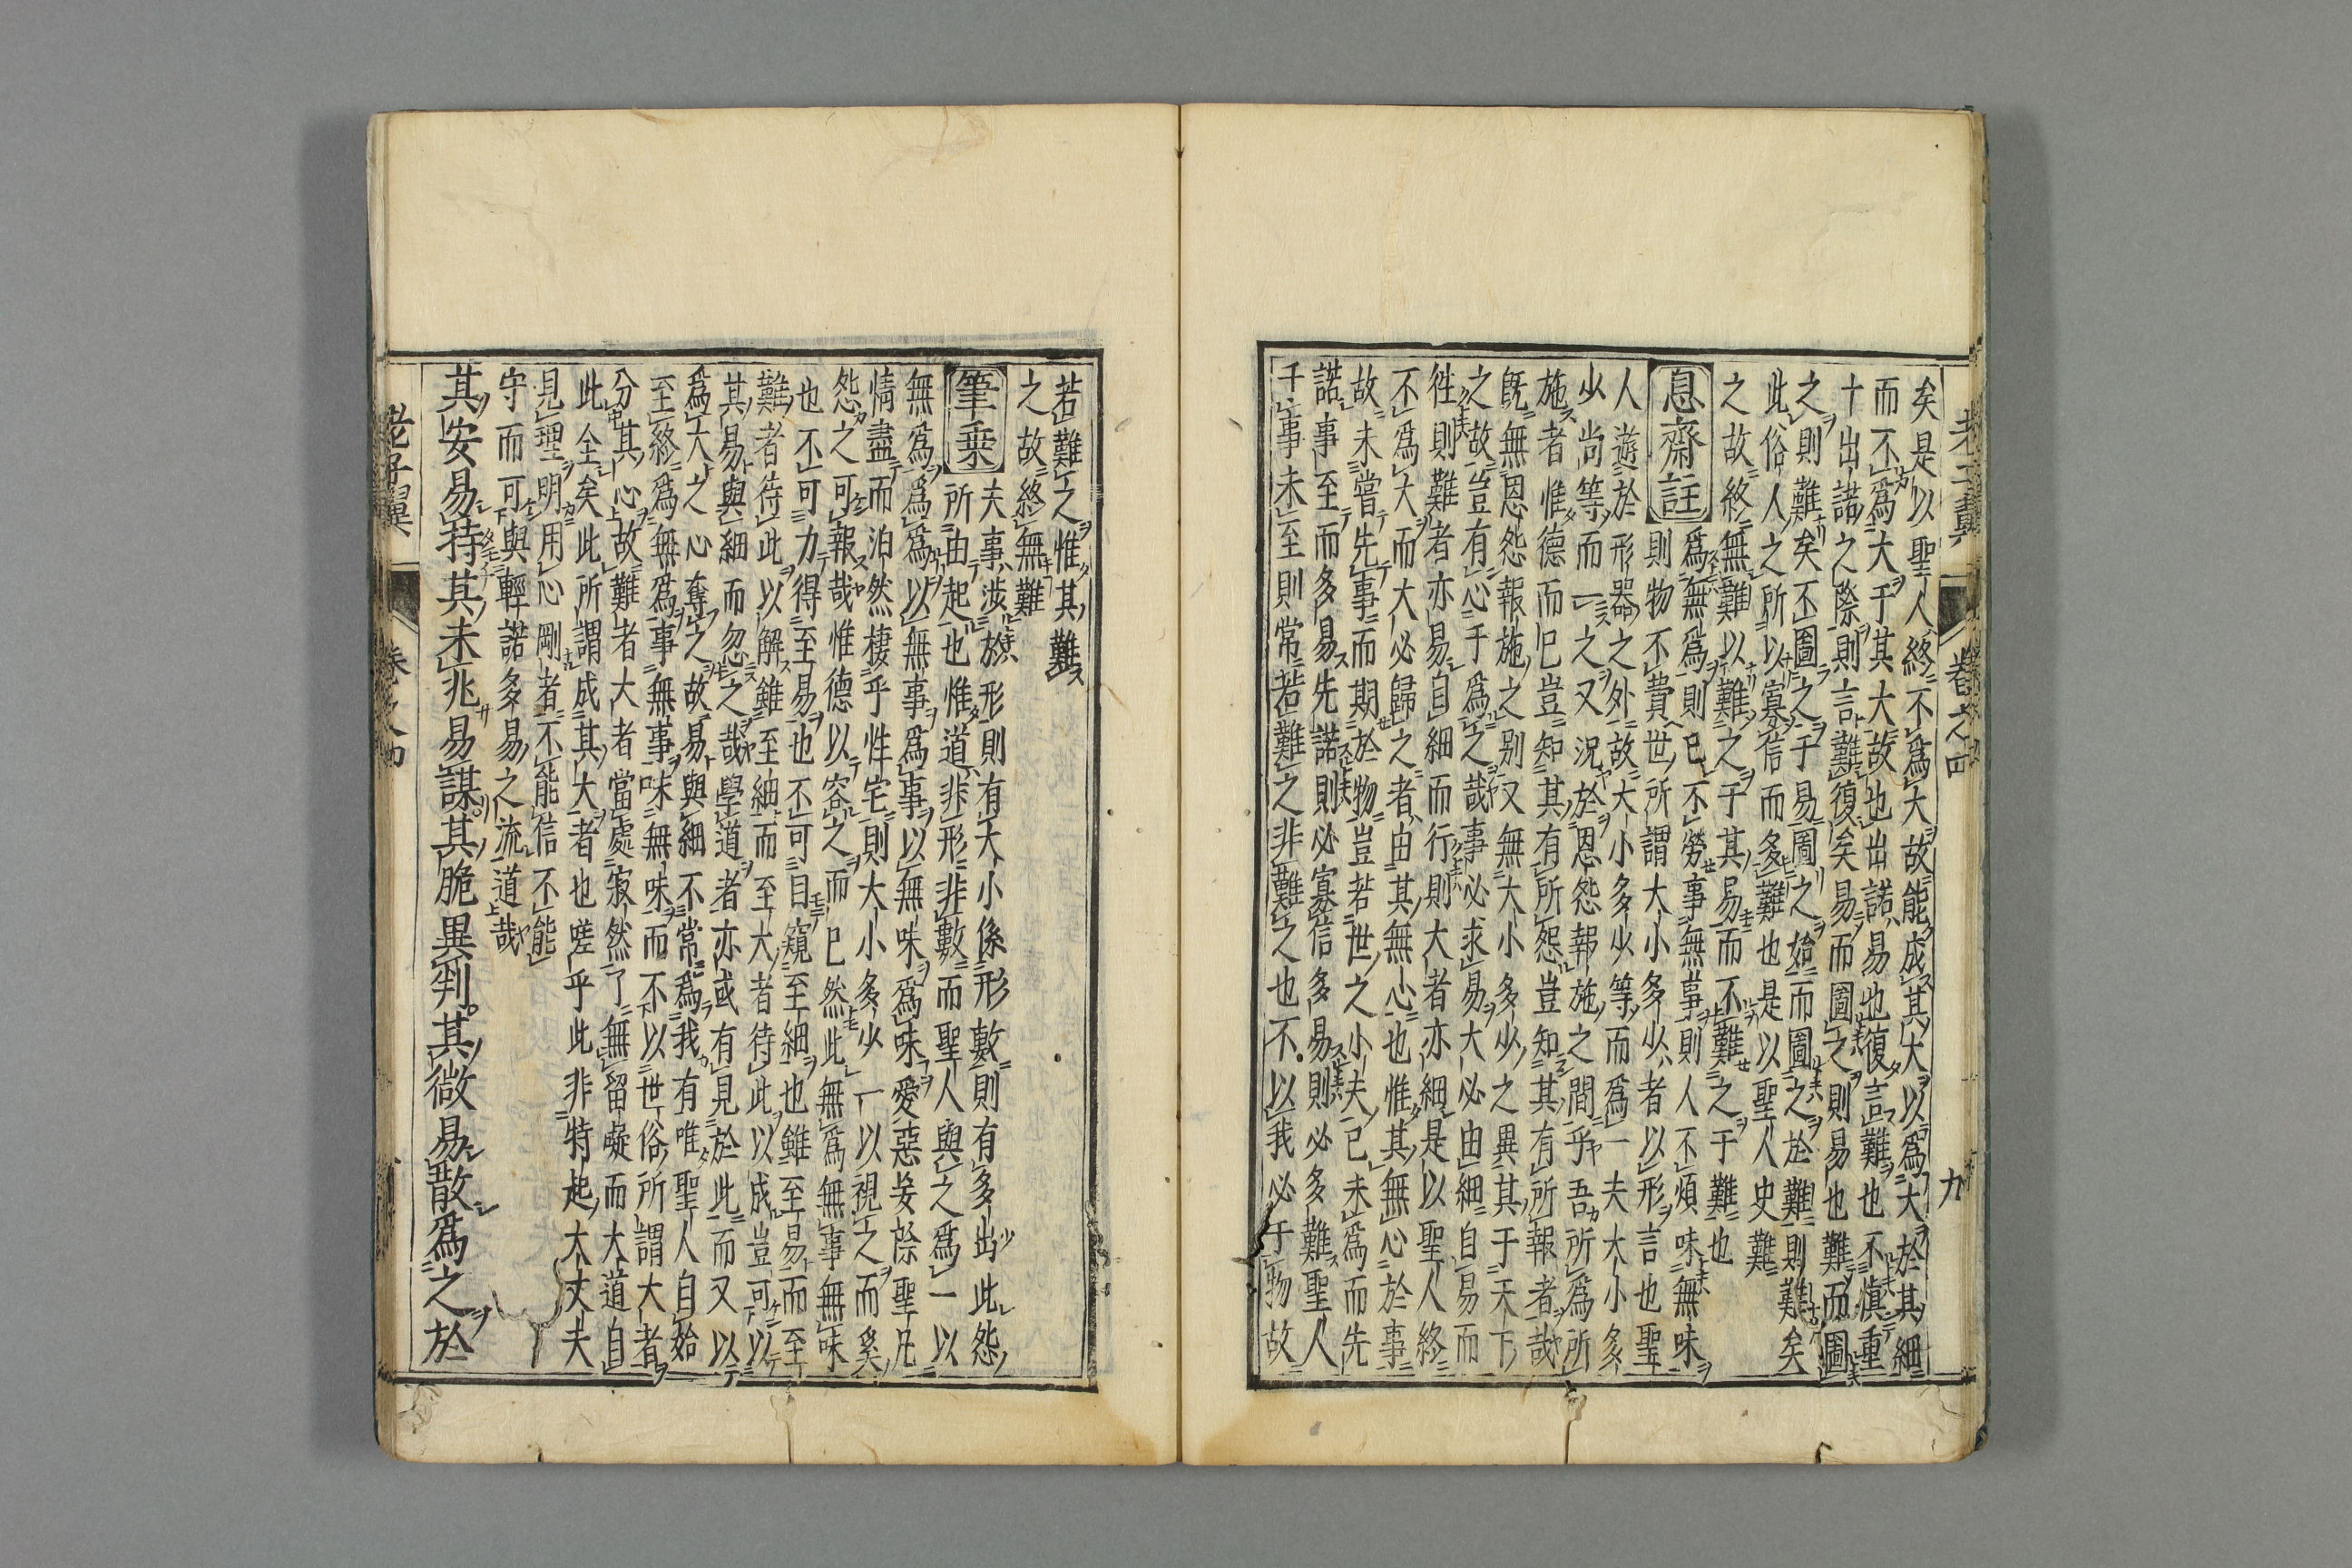 老子翼 卷之四 九
矣是以聖人終不爲大故能成其大以爲大於其細
而不爲大于其大故也出諾易也復言難也不愼重
十出諾之際則言難復矣易而圖之則易也難而圖
之則難矣不圖之于易圖之始而圖之於難則難矣
此俗人之所以寡信而多難也是以聖人史難
之故終無難以難之于其易而不難之于難也
息齋註
爲無爲則已不勞事無事則人不煩味無味
則物不費世所謂大小多少者以形言也聖
人遊於形器之外故大小多少等而爲一夫大小多
少尚等而一之又況於恩怨報施之間乎吾所爲所
施者惟德而已豈知其有所怨豈知其有所報者哉
既無恩怨報施之別又無大小多少之異其于天下
之故豈有心于爲之哉事必求易大必由細自易而
徃則難者亦易自細而行則大者亦細是以聖人終
不爲大而大必歸之者由其無心也惟其無心於事
故未嘗先事而期於物豈若世之小夫已未爲而先
諾事至而多易先諾則必寡信多易則必多難聖人
于事未至則常若難之非難之也不以我必于物故
若難之惟其難
之故終無難
筆乗
夫事涉於形則有大小係形數則有多少此怨
所由起也惟道非形非數而聖人與之爲一以
無爲爲以無事爲事以無味爲味愛惡妄除聖凡
情盡而泊然棲乎性宅則大小多少一以視之而奚
怨之可報哉惟德以容之而已然此無爲無事無味
也不可力得至易也不可目窺至細也雖至易而至
難者待此以解雖至細而至大者待此以成豈可以
其易與細而忽之哉學道者亦或有見於此而又以
爲大之心奪之故易與細不常爲我有唯聖人自始
至終爲無爲事無事味無味而不以世俗所謂大者
分其心故難者大者當處寂然了無留礙而大道自
此全矣此所謂成其大者也嗟乎此非特起大丈夫
見理明用心剛者不能信不能
守而可與輕諾多易之流道哉
其安易持其未兆易謀其脆異判其微易散爲之於
老子翼 卷之四